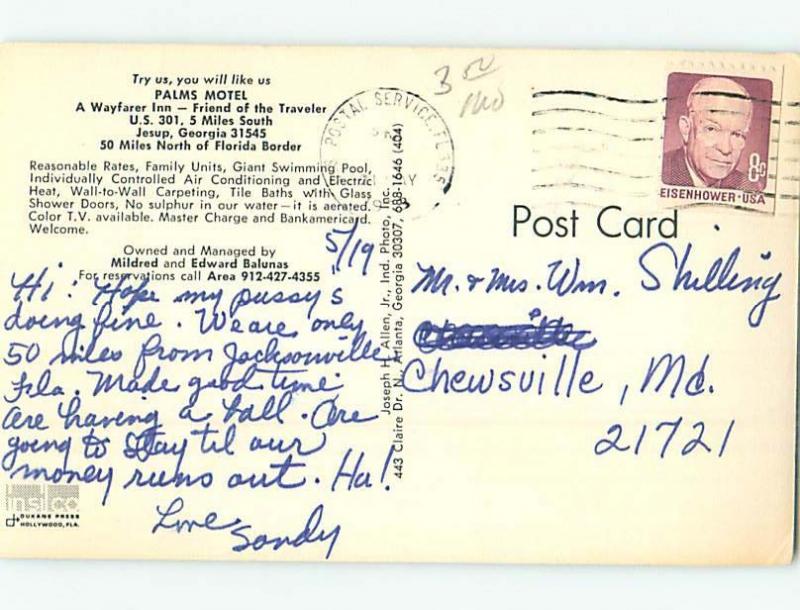 Try us, you will like us
PALMS MOTEL
A Wayfarer Inn — Friend of the Traveler
U.S. 301, 5 Miles South
Jesup, Georgia 31545
50 Miles North of Florida Border
Reasonable Rates, Family Units, Giant Swimming Pool,
Individually Controlled Air Conditioning and Electric
Heat, Wall-to-Wall Carpeting, Tile Baths with Glass
Shower Doors, No sulphur in our water — it is aerated.
Color T.V. available. Master Charge and Bankamericard.
Welcome.
Owned and Managed by
Mildred and Edward Balunas
For reservations call Area 912-427-4355
5/19
Hi! Hope my pussy's
doing fine. We are only
50 miles from Jacksonville
Fla. Made good time
Are having a ball. Are
going to stay til our
money runs out. Ha!
Love
Sandy
DUKANE PRESS
HOLLYWOOD, FLA.
Joseph H. Allen, Jr., Ind. Photo, Inc.
443 Claire Dr. N., Atlanta, Georgia 30307, 688-1646 (404)
POSTAL SERVICE, FL
3 00
8¢
EISENHOWER·USA
Post Card
Mr. & Mrs. Wm. Shilling
Chewsville, Md.
21721